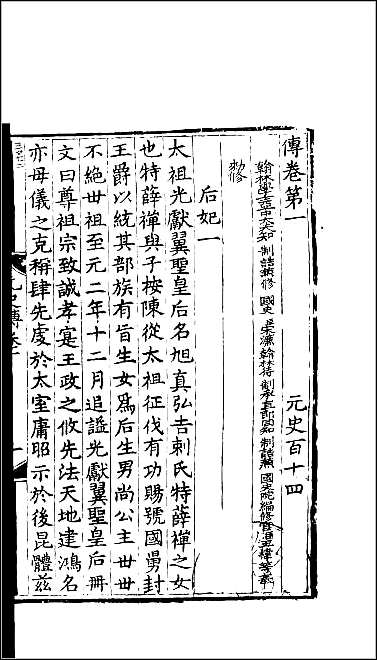 傳卷第一　元史百十四
翰林學士亞中大夫知制誥兼修國史臣宋濂翰林待制承直郎同知制誥兼國史院編修官臣王禕等奉
勑修
后妃一
太祖光獻翼聖皇后名旭真弘吉剌氏特薛禪之女
也特薛禪與子按陳從太祖征伐有功賜號國舅封
王爵以統其部族有旨生女爲后生男尚公主世世
不絕世祖至元二年十二月追謚光獻翼聖皇后冊
文曰尊祖宗致誠孝寔王政之攸先法天地建鴻名
亦母儀之克稱肆先虔於太室庸昭示於後昆體兹